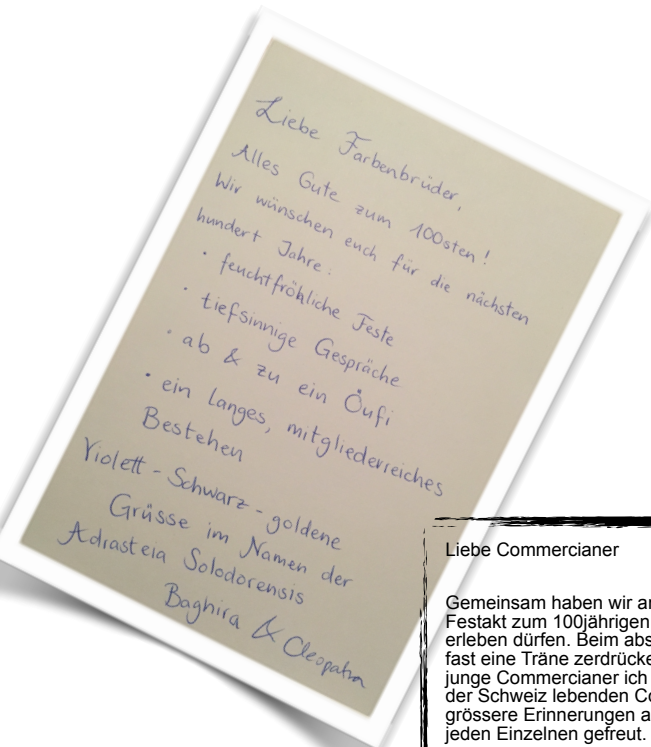 Liebe Farbenbrüder,
Alles Gute zum 100sten!
Wir wünschen euch für die nächsten
hundert Jahre:
· feuchtfröhliche Feste
· tiefsinnige Gespräche
· ab & zu ein Öufi
· ein langes, mitgliederreiches
Bestehen
Violett-Schwarz-goldene
Grüsse im Namen der
Adrasteia Solodorensis
Baghira & Cleopatra
Liebe Commercianer
Gemeinsam haben wir
Festakt zum 100jährigen
erleben dürfen. Beim
fast eine Träne
junge Commercianer ich
der Schweiz lebenden
grössere Erinnerungen
jeden Einzelnen gefreut.